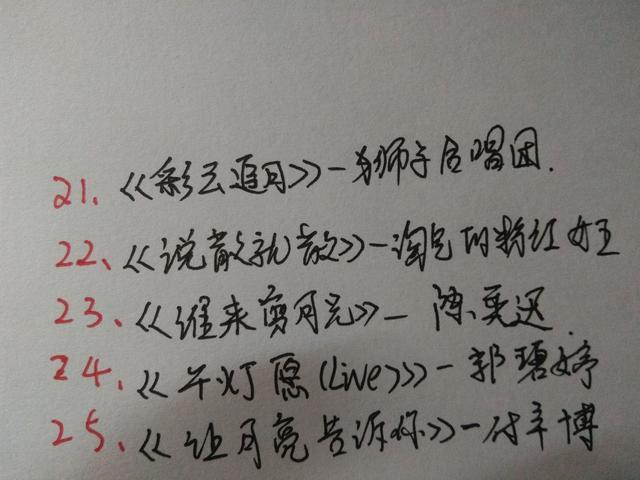 21.《彩云追月》-狮子合唱团.
22、《说散就散》-淘宝的粉红女王
23、《谁来剪月光》-陈奕迅.
24.《千灯愿(Live)》-郭碧婷
25、《让月亮告诉你》-付辛博